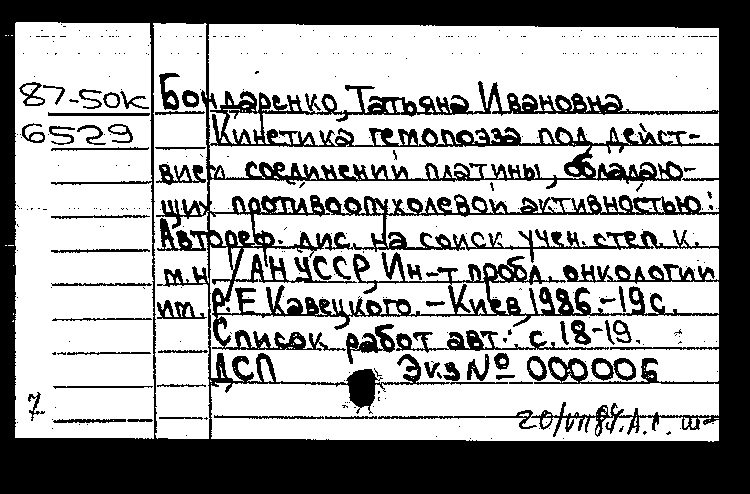 87-50к Бондаренко, Татьяна Ивановна
6529 Кинетика гемопоэза под дейст-
вием соединений платины, обладаю-
щих противоопухолевой активностью:
Автореф. дис. на соиск. учен. степ. к.
м.н / АН УССР, Ин-т пробл. онкологии
им. Р.Е. Кавецкого. – Киев 1986. – 19 с.
Список работ авт.: с. 18-19.
ДСП Экз № 000006
7